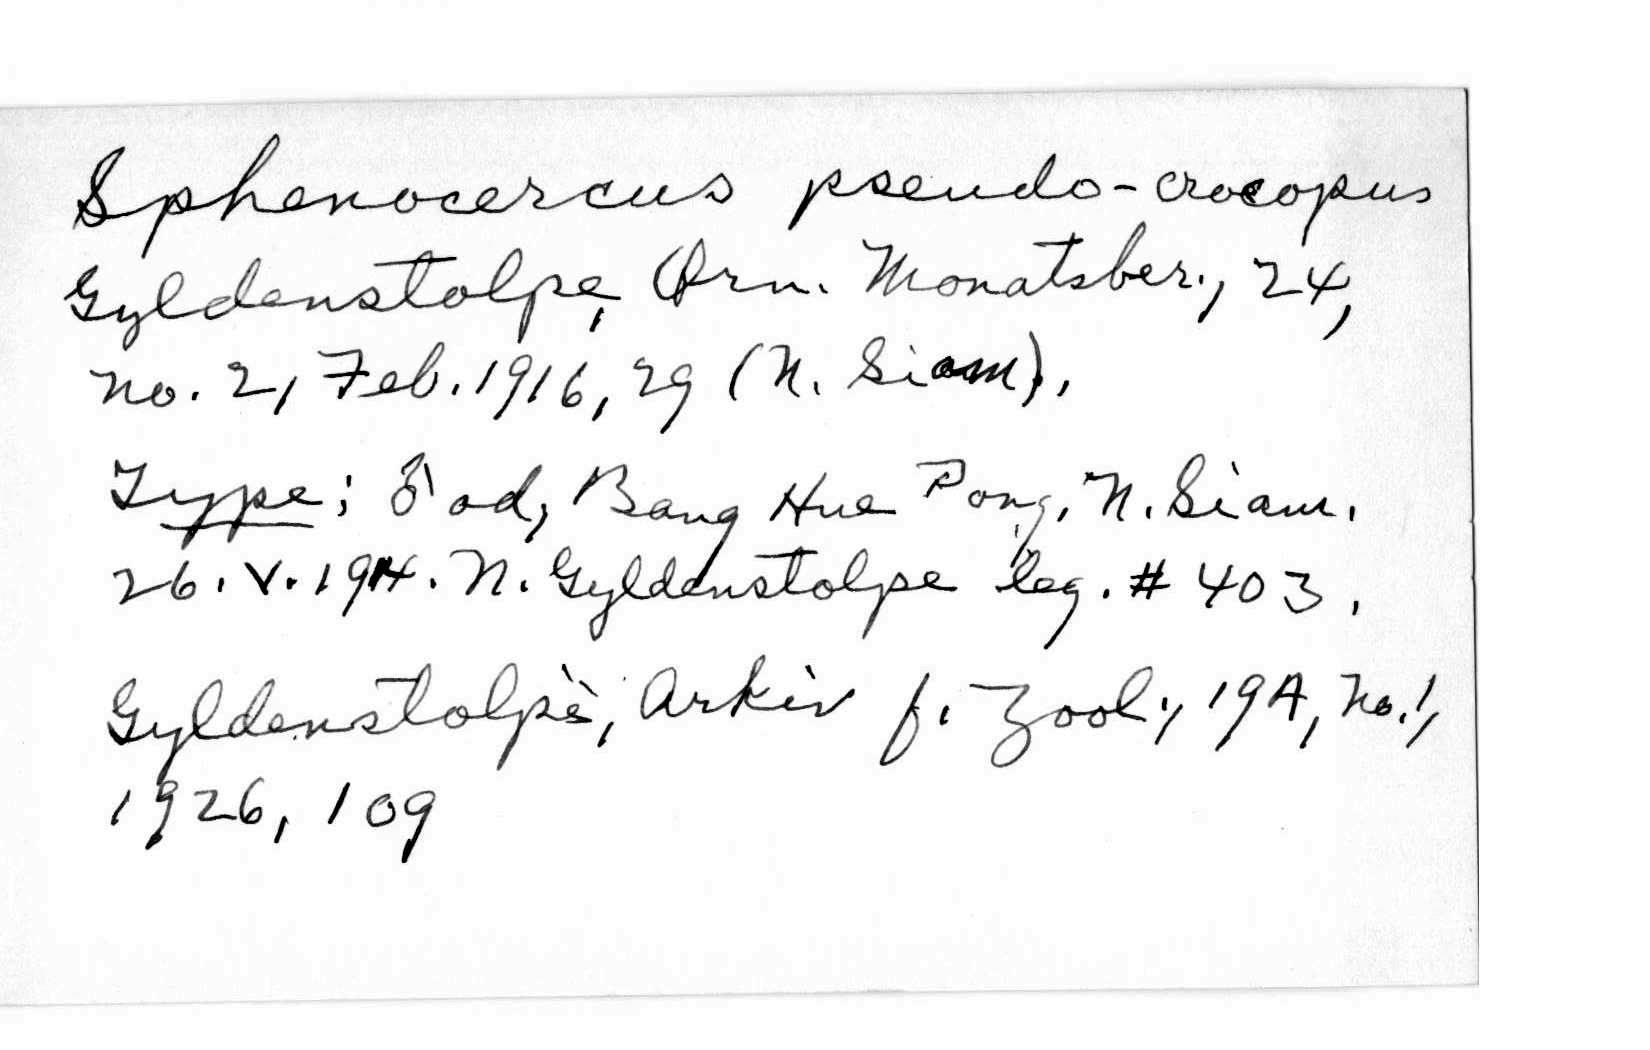 Sphenocercus pseudo-crocopus
Gyldenstolpe, Orn. Monatsber., 24,
no. 2, Feb. 1916, 29 (N. Siam).
Type; ♂ ad, Bang Hue Pong, N. Siam.
26. V. 1914. N. Gyldenstolpe leg. # 403.
Gyldenstolpe, Arkiv f. Zool., 19A, No. 1,
1926, 109